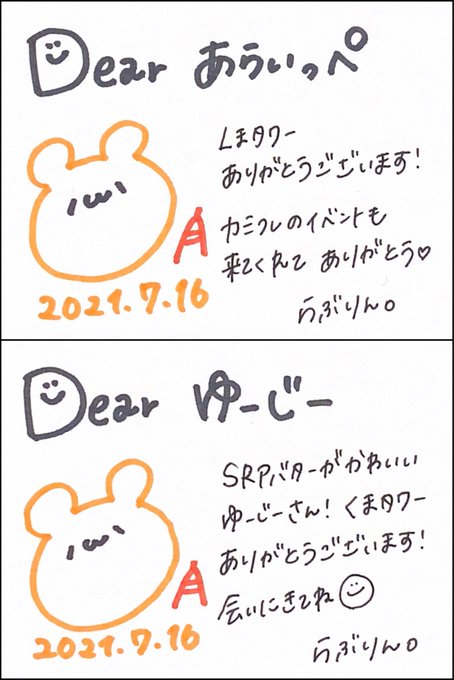 Dear あらいっぺ
くまタワー
ありがとうございます!
カミフレのイベントも
来てくれて ありがとう♡
2021.7.16
らぶりん。
Dear ゆーじー
SRPバターがかわいい
ゆーじーさん! くまタワー
ありがとうございます!
会いにきてね
2021.7.16
らぶりん。